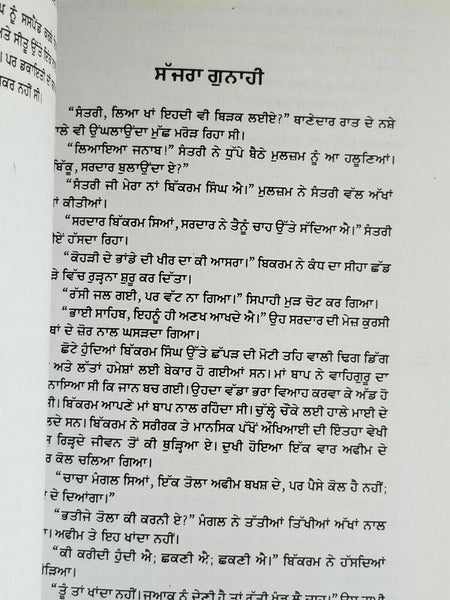 ਪ ਨੂੰ ਸਸਪੈਂਡ ਕਰਕੇ
ਅਤੇ ਸੀਤੂ ਉੱਤੇ ਇੰਨੇ
। ਪਰ ਡਕਾਇਤੀ ਦਾ
ਕਰ ਨਹੀਂ ਸੀ।
ਸੱਜਰਾ ਗੁਨਾਹੀ
"ਸੰਤਰੀ, ਲਿਆ ਖਾਂ ਇਹਦੀ ਵੀ ਬਿੜਕ ਲਈਏ?" ਥਾਣੇਦਾਰ ਰਾਤ ਦੇ ਨਸ਼ੇ
ਾਲੇ ਵੀ ਉੱਘਲਾਉਂਦਾ ਮੁੱਛ ਮਰੋੜ ਰਿਹਾ ਸੀ।
"ਲਿਆਇਆ ਜਨਾਬ!" ਸੰਤਰੀ ਨੇ ਧੁੱਪੇ ਬੈਠੇ ਮੁਲਜ਼ਮ ਨੂੰ ਆ ਹਲੂਣਿਆਂ।
ਬਿੱਕੂ, ਸਰਦਾਰ ਬੁਲਾਉਂਦਾ ਏ?"
"ਸੰਤਰੀ ਜੀ ਮੇਰਾ ਨਾਂ ਬਿੱਕਰਮ ਸਿੰਘ ਐ।" ਮੁਲਜ਼ਮ ਨੇ ਸੰਤਰੀ ਵੱਲ ਅੱਖਾਂ
ਾਂ ਕੀਤੀਆਂ।
"ਸਰਦਾਰ ਬਿੱਕਰਮ ਸਿਆਂ, ਸਰਦਾਰ ਨੇ ਤੈਨੂੰ ਚਾਹ ਉੱਤੇ ਸੱਦਿਆ ਐ।" ਸੰਤਰੀ
ੀਏਂ ਹੱਸਦਾ ਰਿਹਾ।
"ਕੋਹੜੀ ਦੇ ਭਾਂਡੇ ਦੀ ਖੀਰ ਦਾ ਕੀ ਆਸਰਾ।" ਬਿਕਰਮ ਨੇ ਕੰਧ ਦਾ ਸੀਹਾ ਛੱਡ
ੜੇ ਵਿੱਚ ਰੁੜ੍ਹਨਾ ਸ਼ੁਰੂ ਕਰ ਦਿੱਤਾ।
"ਰੱਸੀ ਜਲ ਗਈ, ਪਰ ਵੱਟ ਨਾ ਗਿਆ।" ਸਿਪਾਹੀ ਮੁੜ ਚੋਟ ਕਰ ਗਿਆ।
"ਭਾਈ ਸਾਹਿਬ, ਇਹਨੂੰ ਹੀ ਅਣਖ ਆਖਦੇ ਐ।" ਉਹ ਸਰਦਾਰ ਦੀ ਮੇਜ਼ ਕੁਰਸੀ
ਥਾਂ ਦੇ ਜ਼ੋਰ ਨਾਲ ਘਸੜਦਾ ਗਿਆ।
ਛੋਟੇ ਹੁੰਦਿਆਂ ਬਿੱਕਰਮ ਸਿੰਘ ਉੱਤੇ ਛੱਪੜ ਦੀ ਮੋਟੀ ਤਹਿ ਵਾਲੀ ਢਿਗ ਡਿੱਗ
ਅਤੇ ਲੱਤਾਂ ਹਮੇਸ਼ਾਂ ਲਈ ਬੇਕਾਰ ਹੋ ਗਈਆਂ ਸਨ। ਮਾਂ ਬਾਪ ਨੇ ਵਾਹਿਗੁਰੂ ਦਾ
ਨਾਸਿਆ ਸੀ ਕਿ ਜਾਨ ਬਚ ਗਈ। ਉਹਦਾ ਵੱਡਾ ਭਰਾ ਵਿਆਹ ਕਰਵਾ ਕੇ ਅੱਡ ਹੋ
ਸੀ। ਬਿੱਕਰਮ ਆਪਣੇ ਮਾਂ ਬਾਪ ਨਾਲ ਰਹਿੰਦਾ ਸੀ। ਚੁੱਲ੍ਹੇ ਚੌਕੇ ਲਈ ਹਾਲੇ ਮਾਈ ਦੇ
ਲਦੇ ਸਨ। ਬਿੱਕਰਮ ਨੇ ਸਰੀਰਕ ਤੇ ਮਾਨਸਿਕ ਪੱਖੋਂ ਔਖਿਆਈ ਦੀ ਇੰਤਹਾ ਵੇਖੀ
ਸ ਰਿੜ੍ਹਦੇ ਜੀਵਨ ਤੋਂ ਕੀ ਥੁੜ੍ਹਿਆ ਏ। ਦੁਖੀ ਹੋਇਆ ਇੱਕ ਵਾਰ ਅਫੀਮ ਦੇ
ਰ ਕੋਲ ਚਲਿਆ ਗਿਆ।
"ਚਾਚਾ ਮੰਗਲ ਸਿਆਂ, ਇੱਕ ਤੋਲਾ ਅਫੀਮ ਬਖਸ਼ ਦੇ, ਪਰ ਪੈਸੇ ਕੋਲ ਹੈ ਨਹੀਂ;
ਦੇ ਦਿਆਂਗਾ।"
"ਭਤੀਜੇ ਤੋਲਾ ਕੀ ਕਰਨੀ ਏ?" ਮੰਗਲ ਨੇ ਤੱਤੀਆਂ ਤਿੱਖੀਆਂ ਅੱਖਾਂ ਨਾਲ
ਾ। ਅਫੀਮ ਤੇ ਇਹ ਖਾਂਦਾ ਨਹੀਂ।
"ਕੀ ਕਰੀਦੀ ਹੁੰਦੀ ਐ; ਛਕਣੀ ਐ; ਛਕਣੀ ਐ।" ਬਿੱਕਰਮ ਨੇ ਹੱਸਦਿਆਂ
ੜਿਆ।
"ਤੂੰ ਤਾਂ ਖਾਂਦਾ ਨਹੀਂ। ਜੁਆਕ ਨੂੰ ਦੇਣੀ ਹੈ ਤਾਂ ਰੱਤੀ